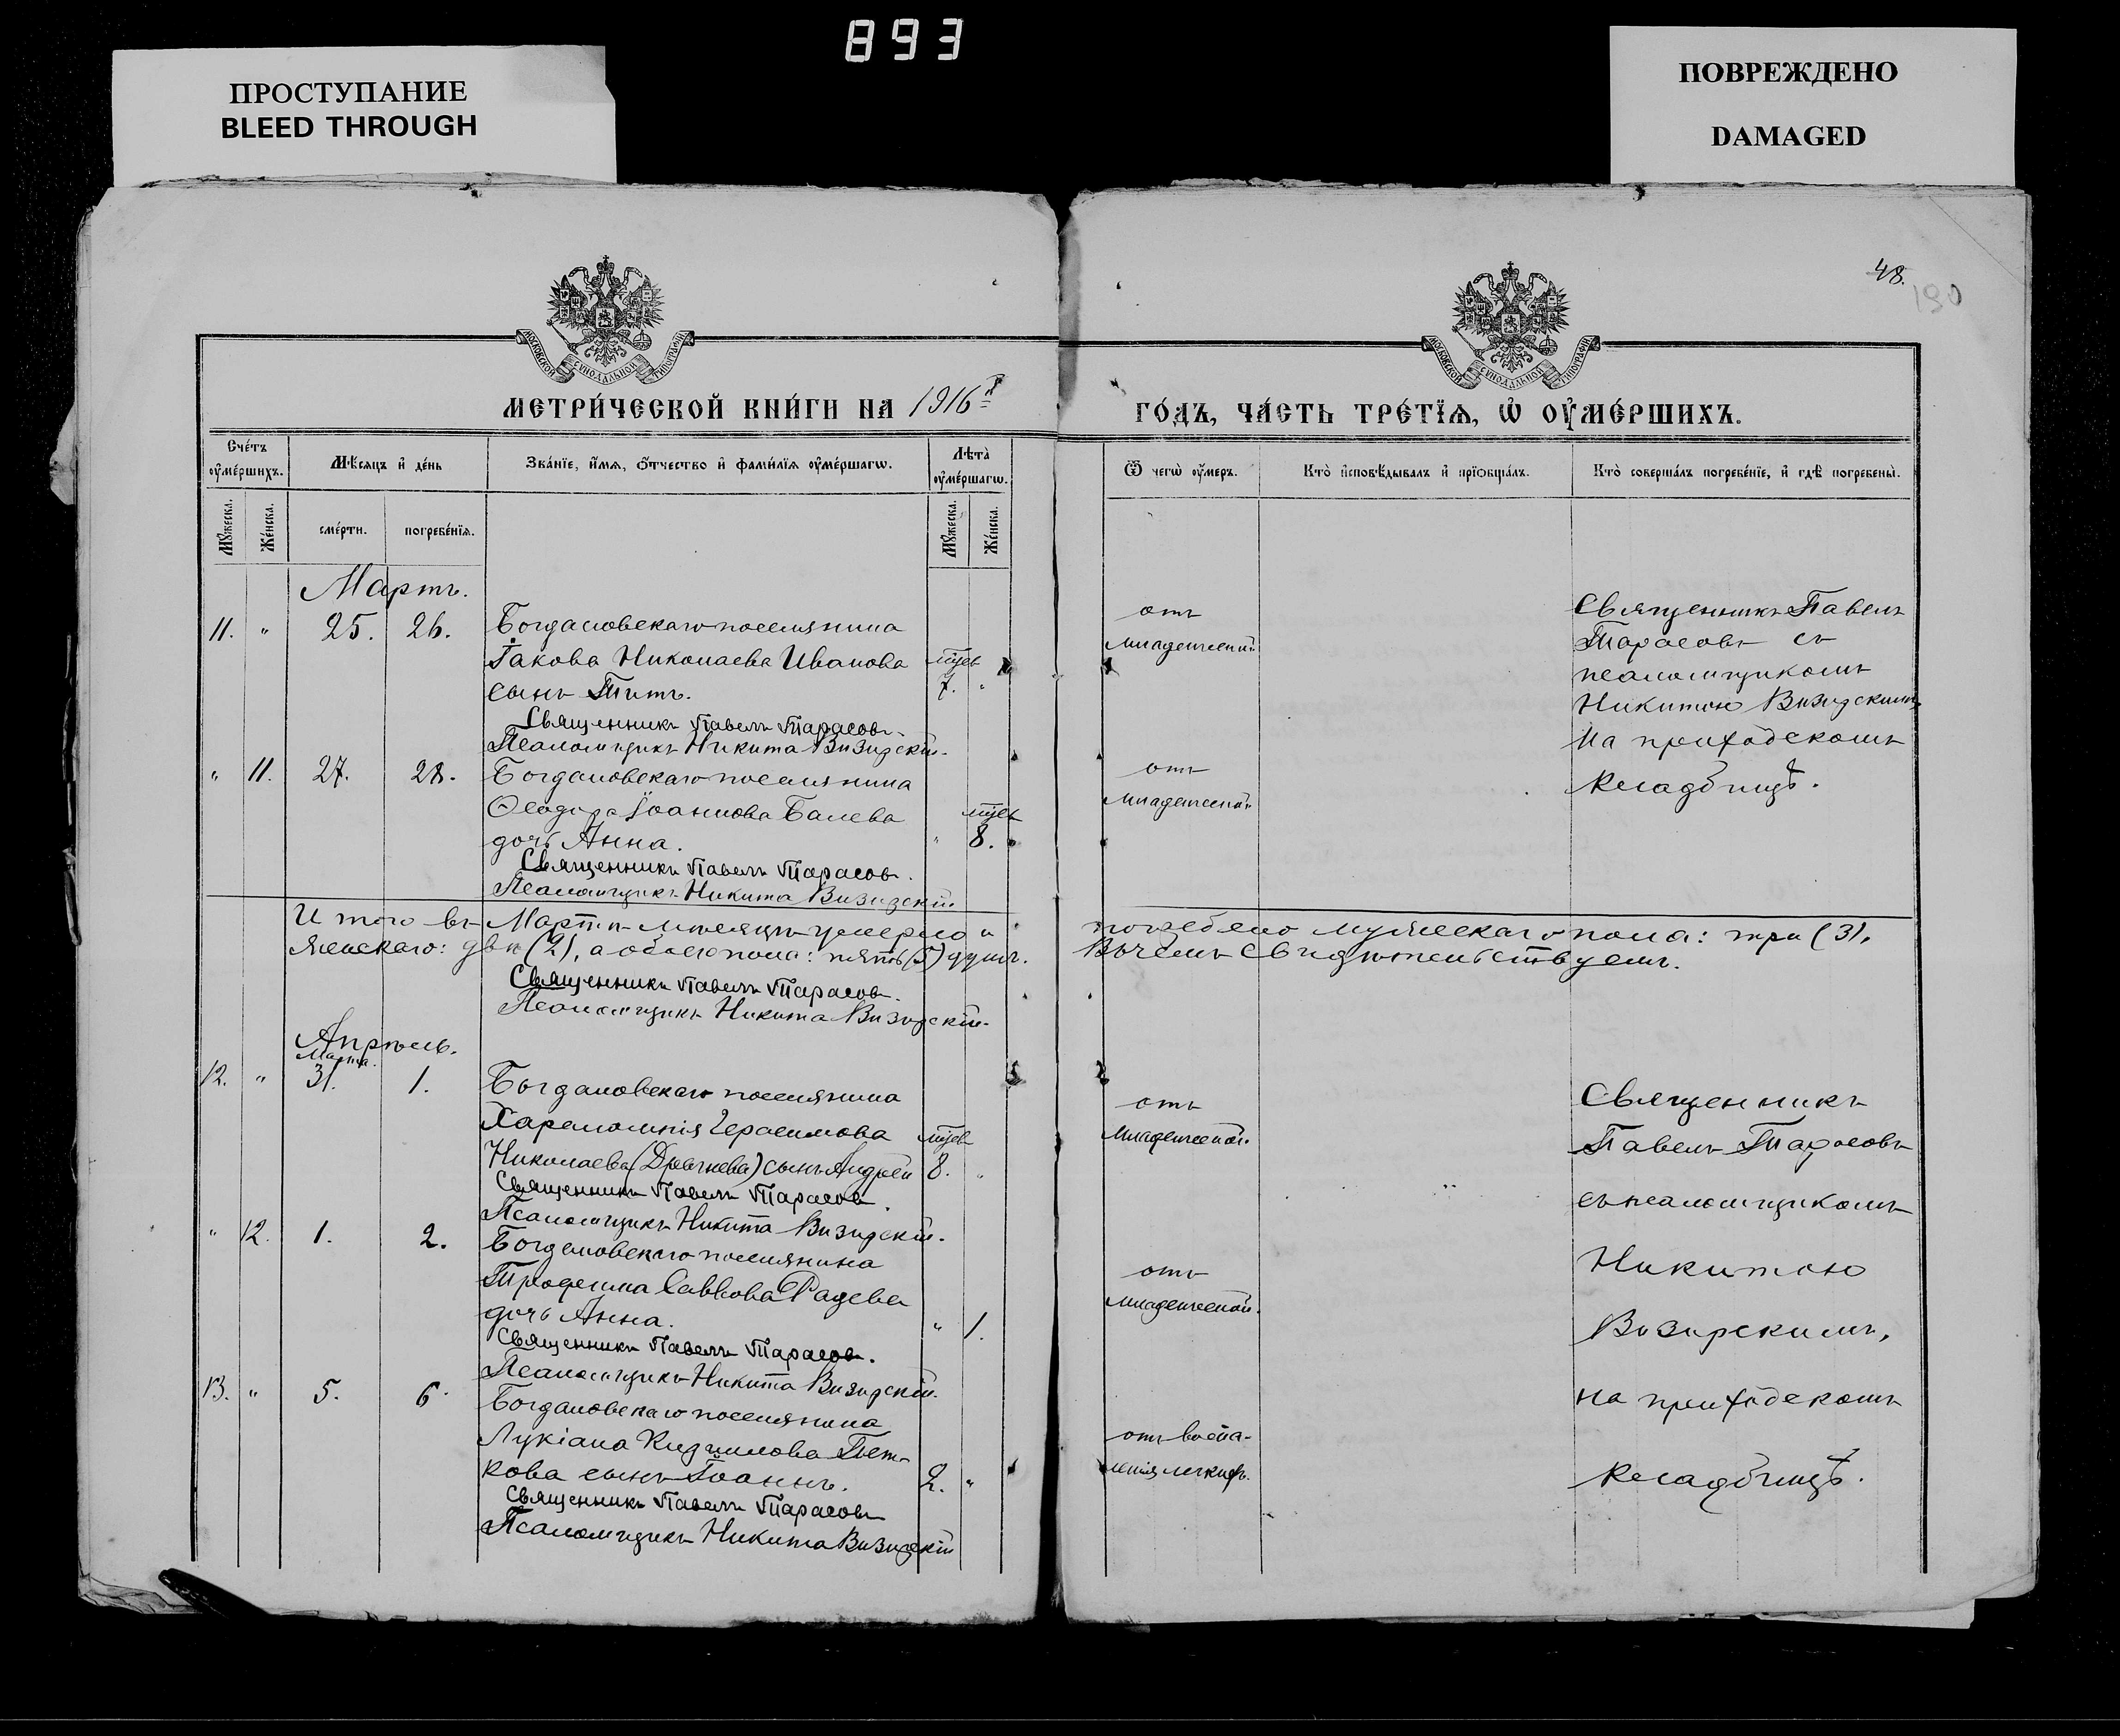 893
ПРОСТУПАНИЕ
BLEED THROUGH
ПОВРЕЖДЕНО
DAMAGED
48.
190
МОСКОВСКОЙ СѴНОДАЛЬНОЙ ТИПОГРАФІИ
МОСКОВСКОЙ СѴНОДАЛЬНОЙ ТИПОГРАФІИ
МЕТРИ́ЧЕСКОЙ КНИ́ГИ НА 1916й
ГО́ДЪ, ЧА́СТЬ ТРЕ́ТЇѦ, Ѡ҆ ОУ҆МЕ́РШИХЪ.
Сче́тъ оу҆ме́ршихъ.
Мѣ́сяцъ и҆ де́нь
Зва́нїе, и҆́мѧ, ѻ҆́тчество и҆ фами́лїѧ оу҆ме́ршагѡ.
Лѣ́та̀ оу҆ме́ршагѡ.
Ѿ чегѡ̀ оу҆́меръ.
Кто̀ и҆сповѣ́дывалъ и҆ прїѻбща́лъ.
Кто̀ соверша́лъ погребе́нїе, и҆ гдѣ̀ погребены̀.
Мꙋ́жеска.
Же́нска.
сме́рти.
погребе́нїѧ.
Мꙋ́жеска.
Же́нска.
Мартъ.
11. " 25. 26. Богдановскаго поселянина
Іакова Николаева Иванова мцев
сынъ Титъ. 7. "
Священникъ Павелъ Тарасовъ.
Псаломщикъ Никита Визирскій.
отъ
младенческой
Священникъ Павелъ
Тарасовъ съ
псаломщикомъ
Никитою Визирскимъ,
на приходскомъ
кладбищѣ.
" 11. 27. 28. Богдановскаго поселянина
Ѳеодора Іоаннова Балева мцев
дочь Анна. " 8.
Священникъ Павелъ Тарасовъ.
Псаломщикъ Никита Визирскій
отъ
младенческой
Итого въ Мартѣ мѣсяцѣ умерло и погребено мужескаго пола: три (3),
женскаго: двѣ (2), а обоего пола: пять (5) душъ. В чемъ свидѣтельствуемъ.
Священникъ Павелъ Тарасовъ.
Псаломщикъ Никита Визирскій.
Апрѣль.
Марта.
12. " 31. 1. Богдановскаго поселянина
Харалампія Герасимова мцев
Николаева (Дрвчнева) сынъ Андрей 8. "
Священникъ Павелъ Тарасовъ.
Псаломщикъ Никита Визирскій.
отъ
младенческой.
Священникъ
Павелъ Тарасовъ
съ псаломщикомъ
Никитою
Визирскимъ,
на приходскомъ
кладбищѣ.
" 12. 1. 2. Богдановскаго поселянина
Трофима Саввова Радева
дочь Анна. " 1.
Священникъ Павелъ Тарасовъ.
Псаломщикъ Никита Визирскій.
отъ
младенческой.
13. " 5. 6. Богдановскаго поселянина
Лукіана Кириллова Пет-
кова сынъ Іоаннъ. 2. "
Священникъ Павелъ Тарасовъ
Псаломщикъ Никита Визирскій
отъ воспа-
ленія легкихъ.